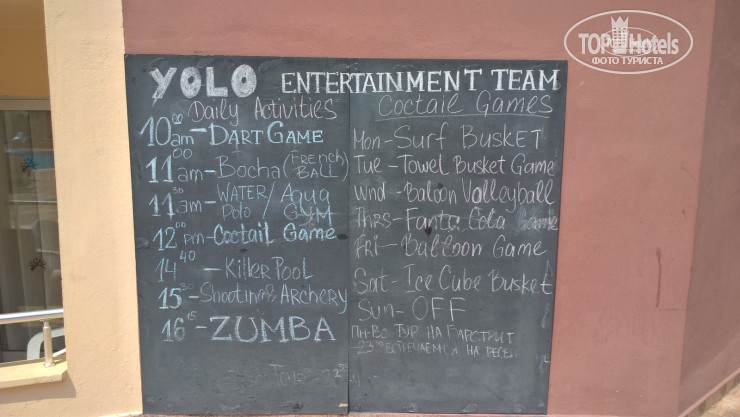 TOPHotels
ФОТО ТУРИСТА
YOLO ENTERTAINMENT TEAM
Daily Activities
10 00 am - DART GAME
11 00 am - Bocha (FRENCH BALL)
11 30 am - WATER POLO / Aqua GYM
12 00 pm - Coctail Game
14 40 - Killer Pool
15 30 - Shooting Archery
16 15 - ZUMBA
Coctail Games
Mon - Surf BUSKET
Tue - Towel Busket Game
Wnd - Baloon Volleyball
Thrs - Fanta Cola Game
Fri - Balloon Game
Sat - Ice Cube Busket
Sun - OFF
ПН-Вс ТУР НА БАРСТРИТ
ВСТРЕЧАЕМСЯ НА